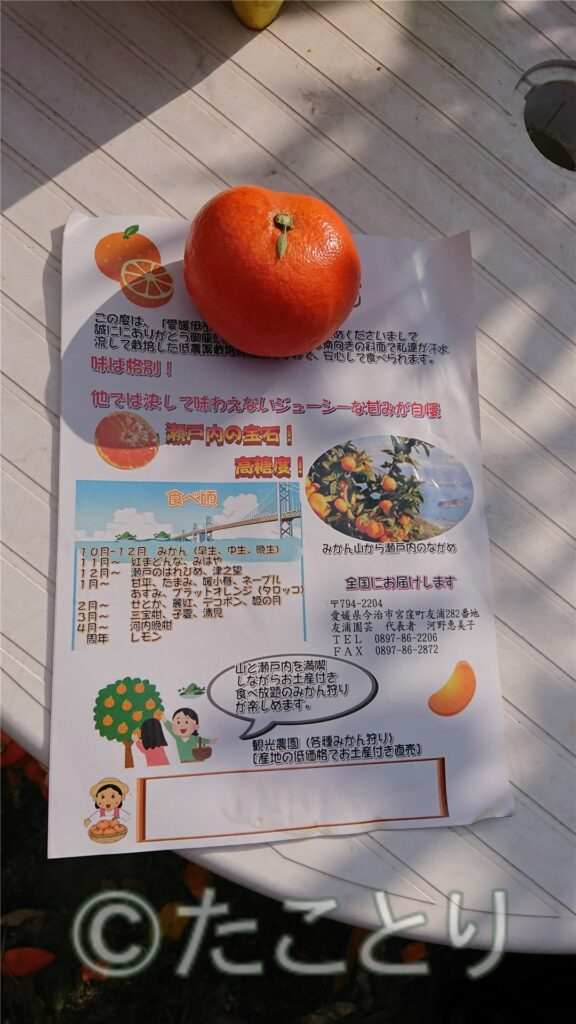 この度は、「愛媛伊予 めくださいまして
誠ににありがとう御座 南向きの斜面で私達が汗水
流して栽培した低農薬栽培 、安心して食べられます。
味は格別!
他では決して味わえないジューシーな甘みが自慢
瀬戸内の宝石!
高糖度!
食べ頃
10月-12月 みかん(早生、中生、晩生)
11月~ 紅まどんな、みはや
12月~ 瀬戸のはれひめ、津之望
1月~ 甘平、たまみ、媛小春、ネーブル
あすみ、ブラットオレンジ(タロッコ)
2月~ せとか、麗紅、デコポン、姫の月
3月~ 三宝柑、子夏、清見
4月~ 河内晩柑
周年 レモン
みかん山から瀬戸内のながめ
全国にお届けします
〒794-2204
愛媛県今治市宮窪町友浦282番地
友浦園芸 代表者 河野恵美子
TEL 0897-86-2206
FAX 0897-86-2872
山と瀬戸内を満喫
しながらお土産付き
食べ放題のみかん狩り
が楽しめます。
観光農園(各種みかん狩り)
[産地の低価格でお土産付き直売]
©たことり